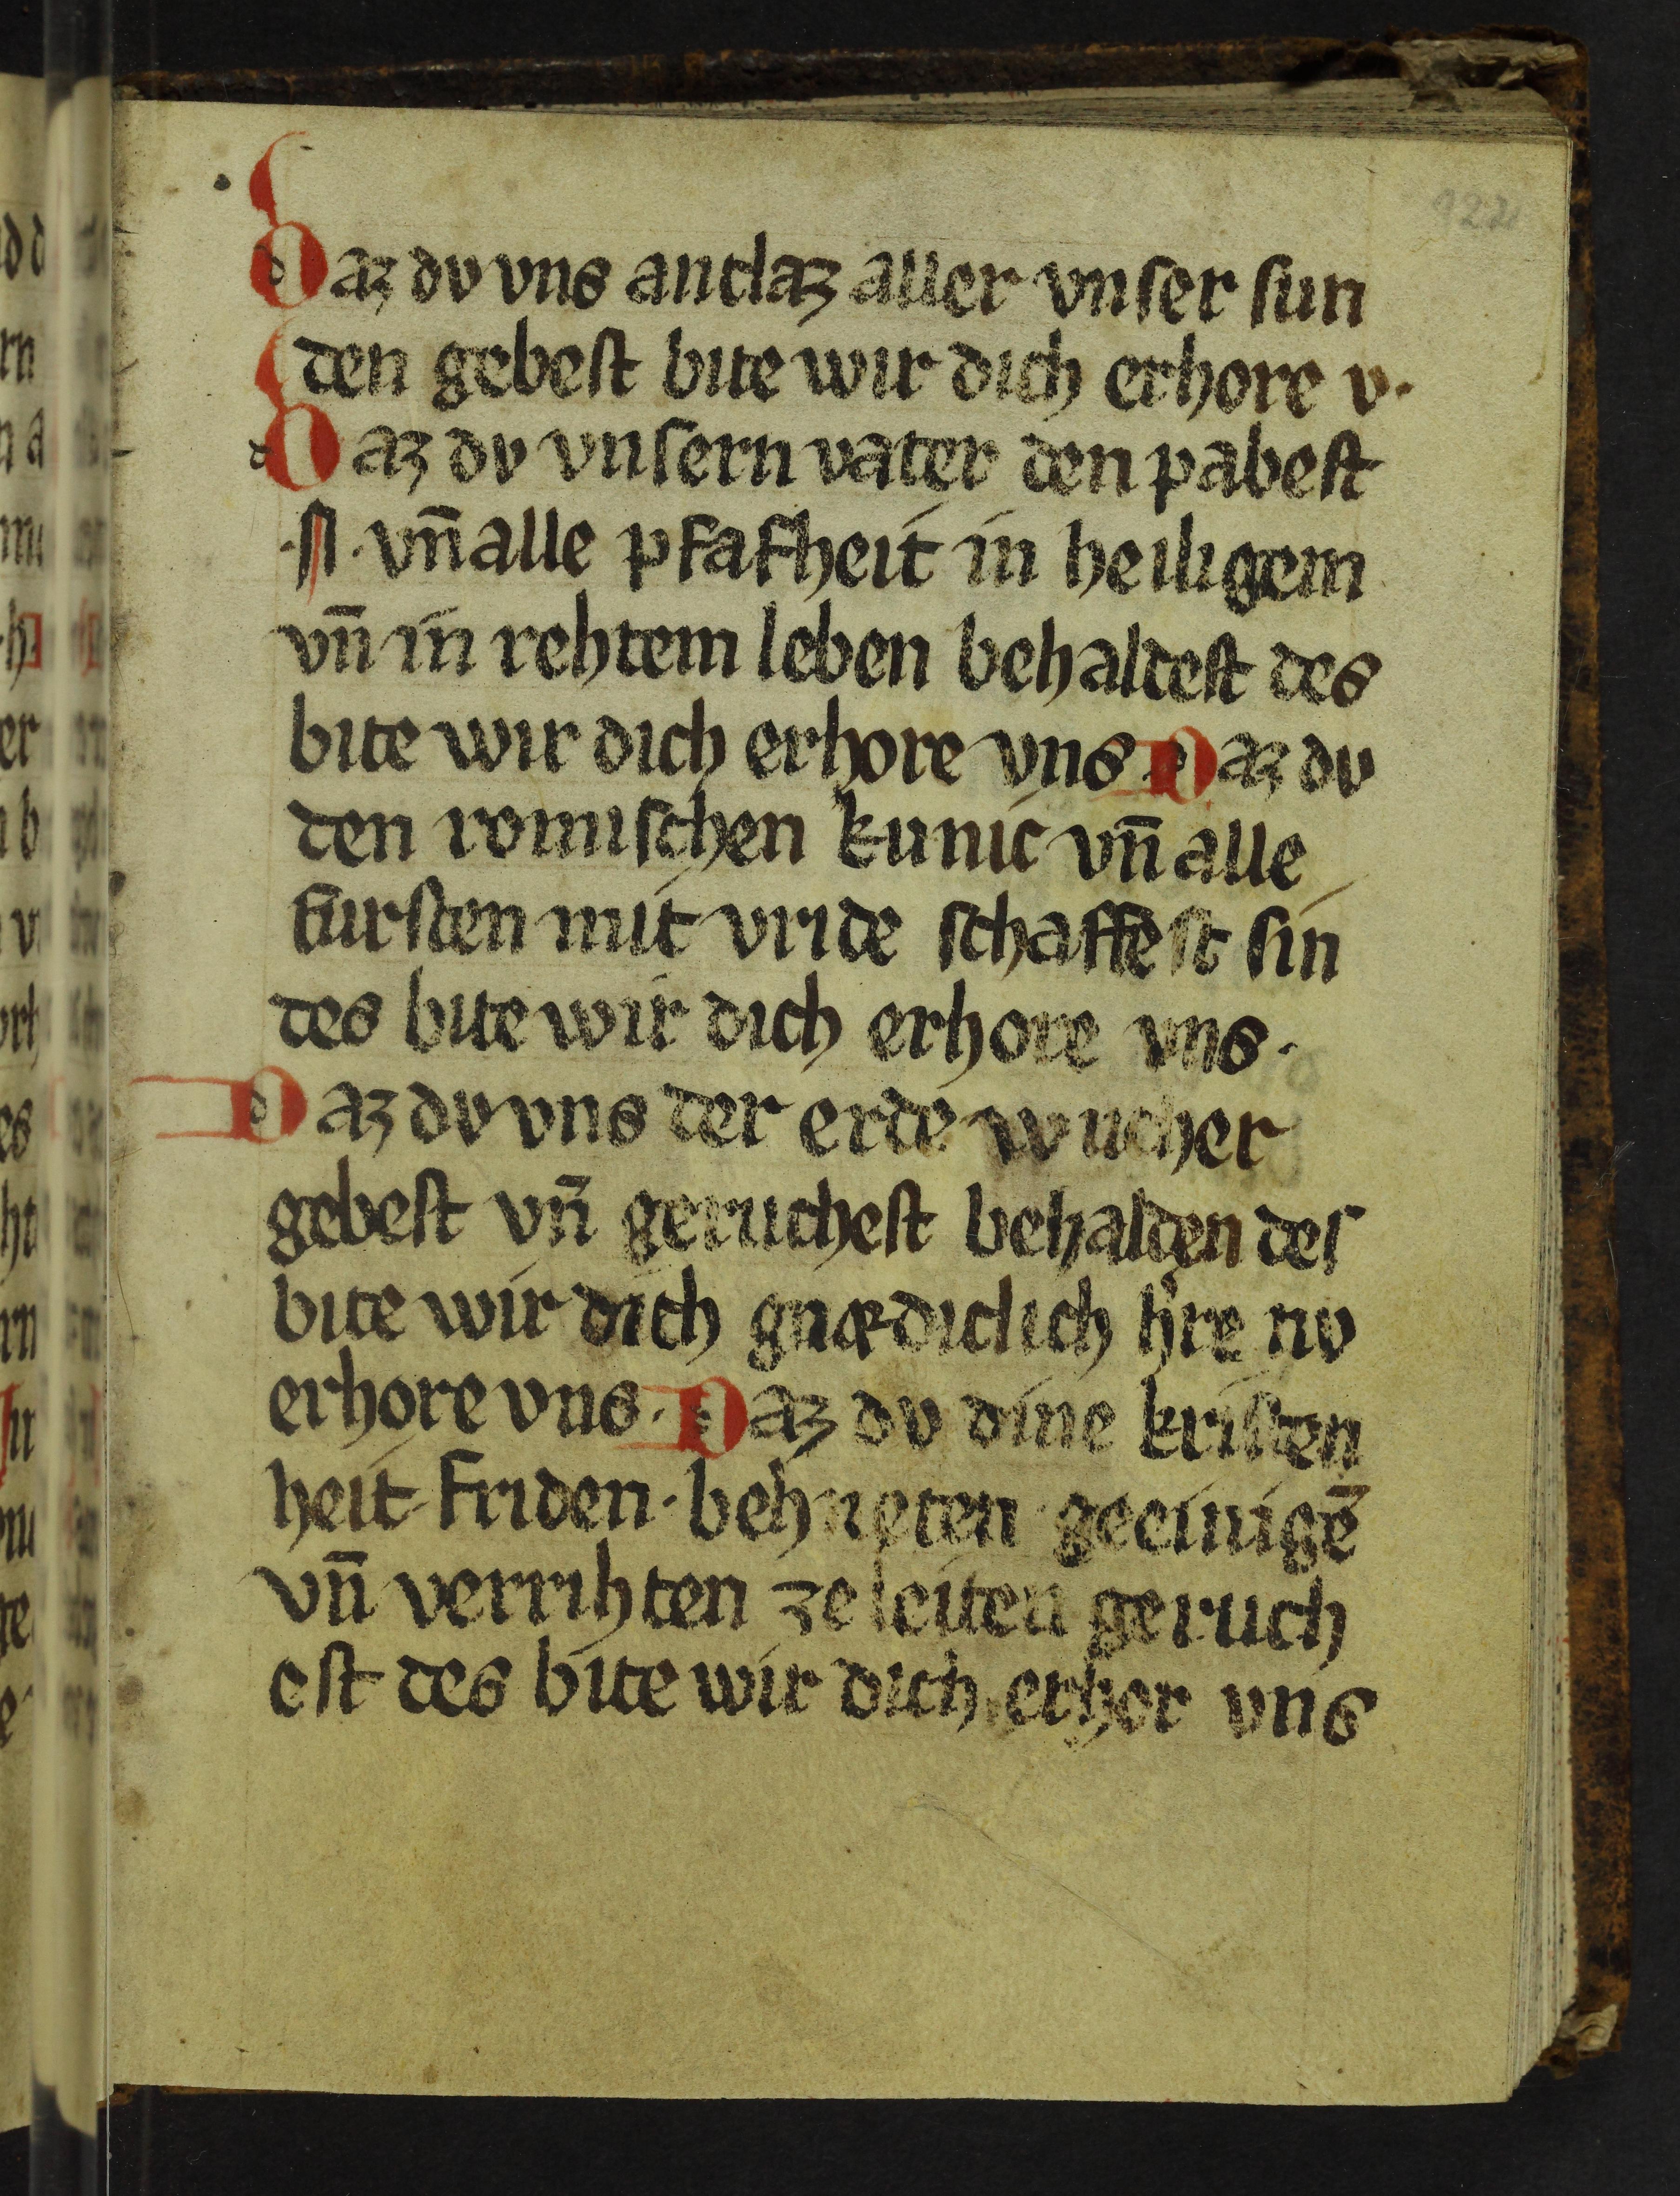 122
Daz dv vns anclaz aller vnser sun
den gebest bite wir dich erhore v·
Daz dv vnsern vater den pabest
·N· vn̄ alle pfafheit in heiligem
vn̄ in rehtem leben behaldest des
bite wir dich erhore vns Daz dv
den romischen kunic vn̄ alle
fursten mit vride schaffest sin
des bite wir dich erhore vns·
Daz dv vns der erde wucher
gebest vn̄ geruchest behalden des
bite wir dich gnædiclich h're nv
erhore vns· Daz dv dine kristen
heit friden· behueten geeinigē
vn̄ verrihten ze leiten geruch
est des bite wir dich erhor vns